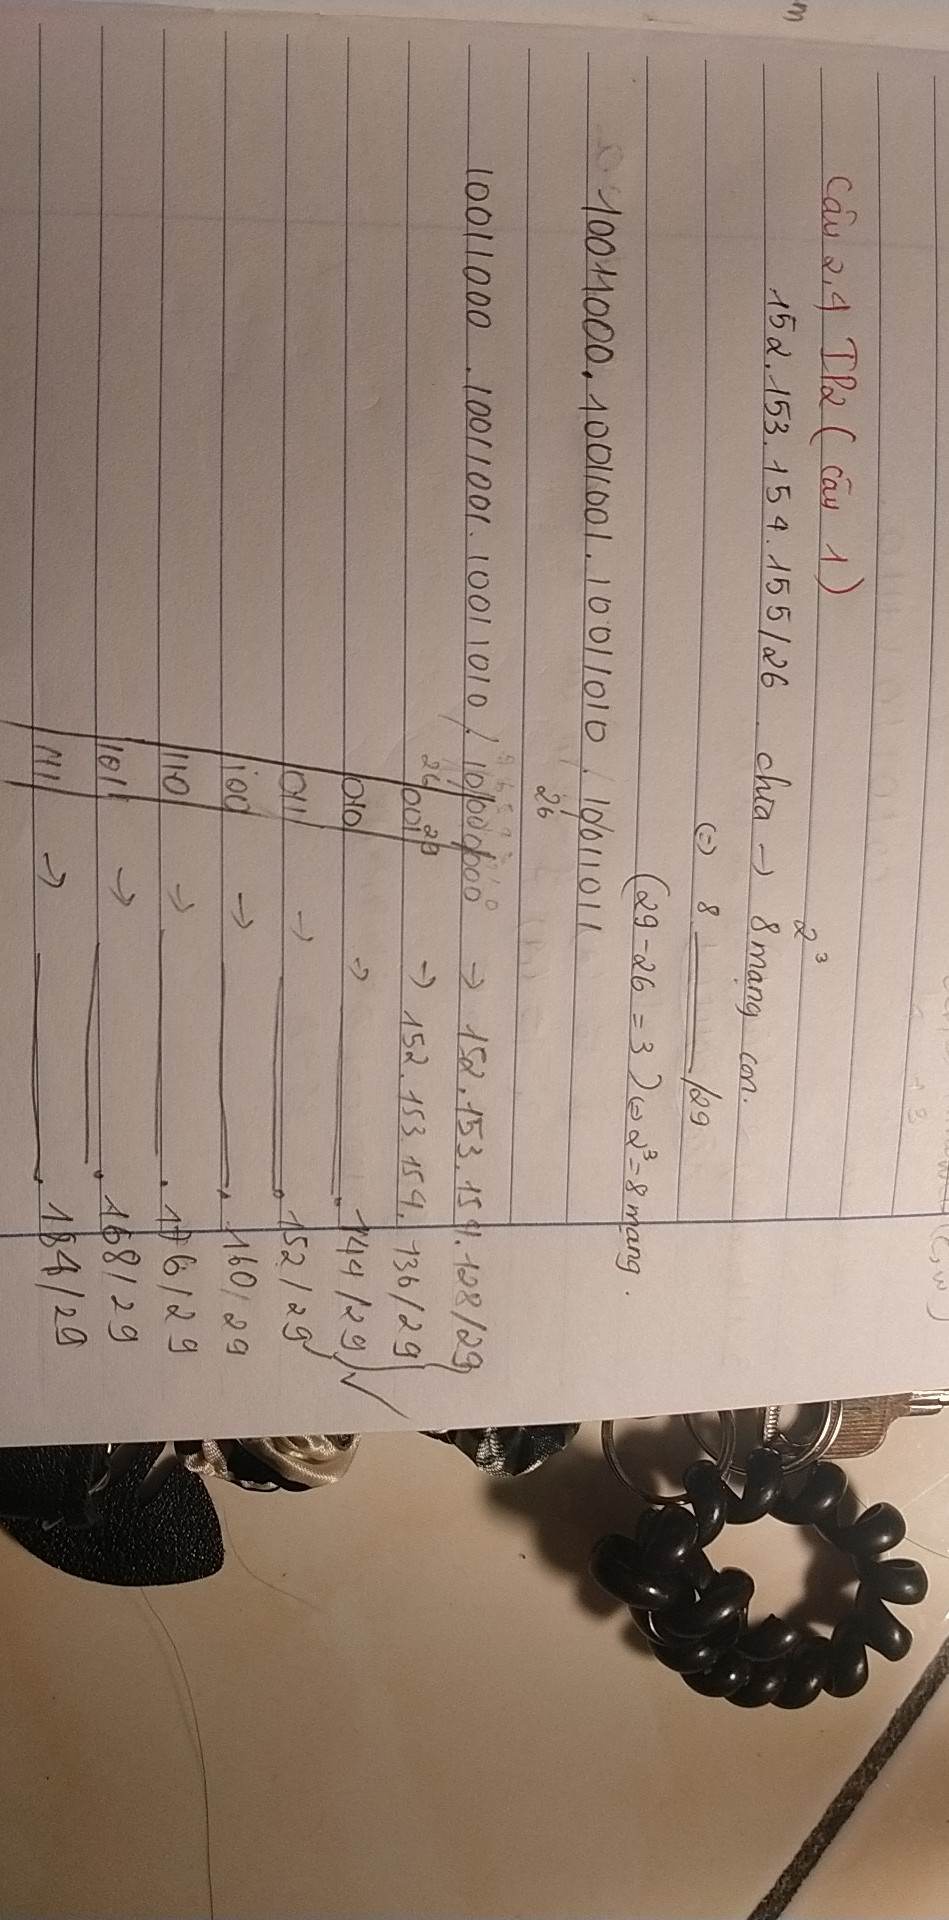 Câu 2,4 IP2 ( câu 1 )
2³
152.153.154.155/26 chia → 8 mạng con.
(=) 8 ______ /29
(29-26 = 3) (=) 2³=8 mạng.
10011000.10011001.10011010.10011011
26
10011000.10011001.10011010.10/000/000 → 152.153.154.128/29
26 29
001 → 152.153.154.136/29
010 → ______.144/29
011 → ______.152/29
100 → ______.160/29
110 → ______.176/29
101 → ______.168/29
111 → ______.184/29